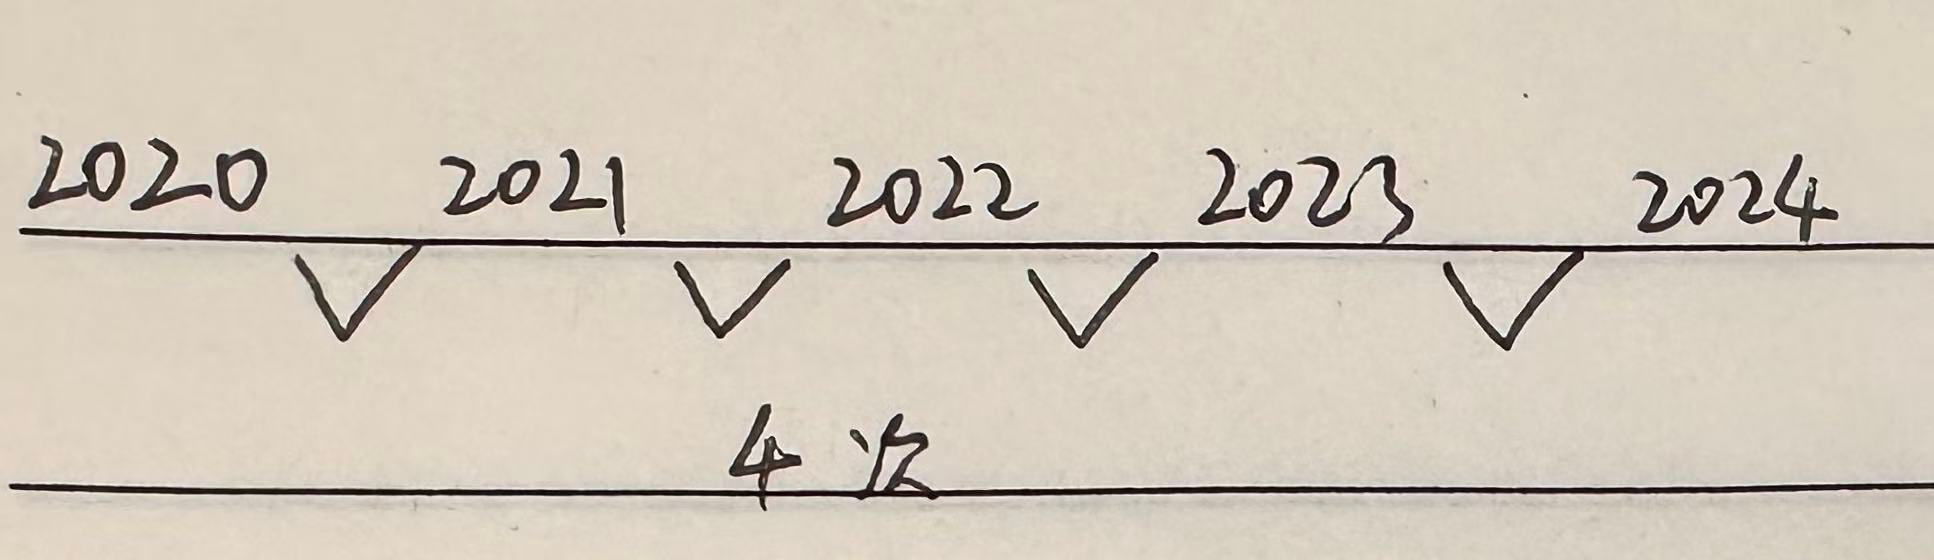 2020 2021 2022 2023 2024
4 次